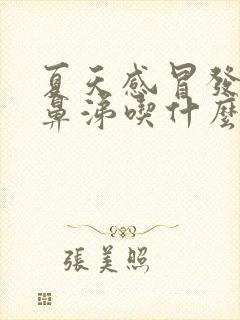 夏天感冒發
鼻涕喫什麼
張美照